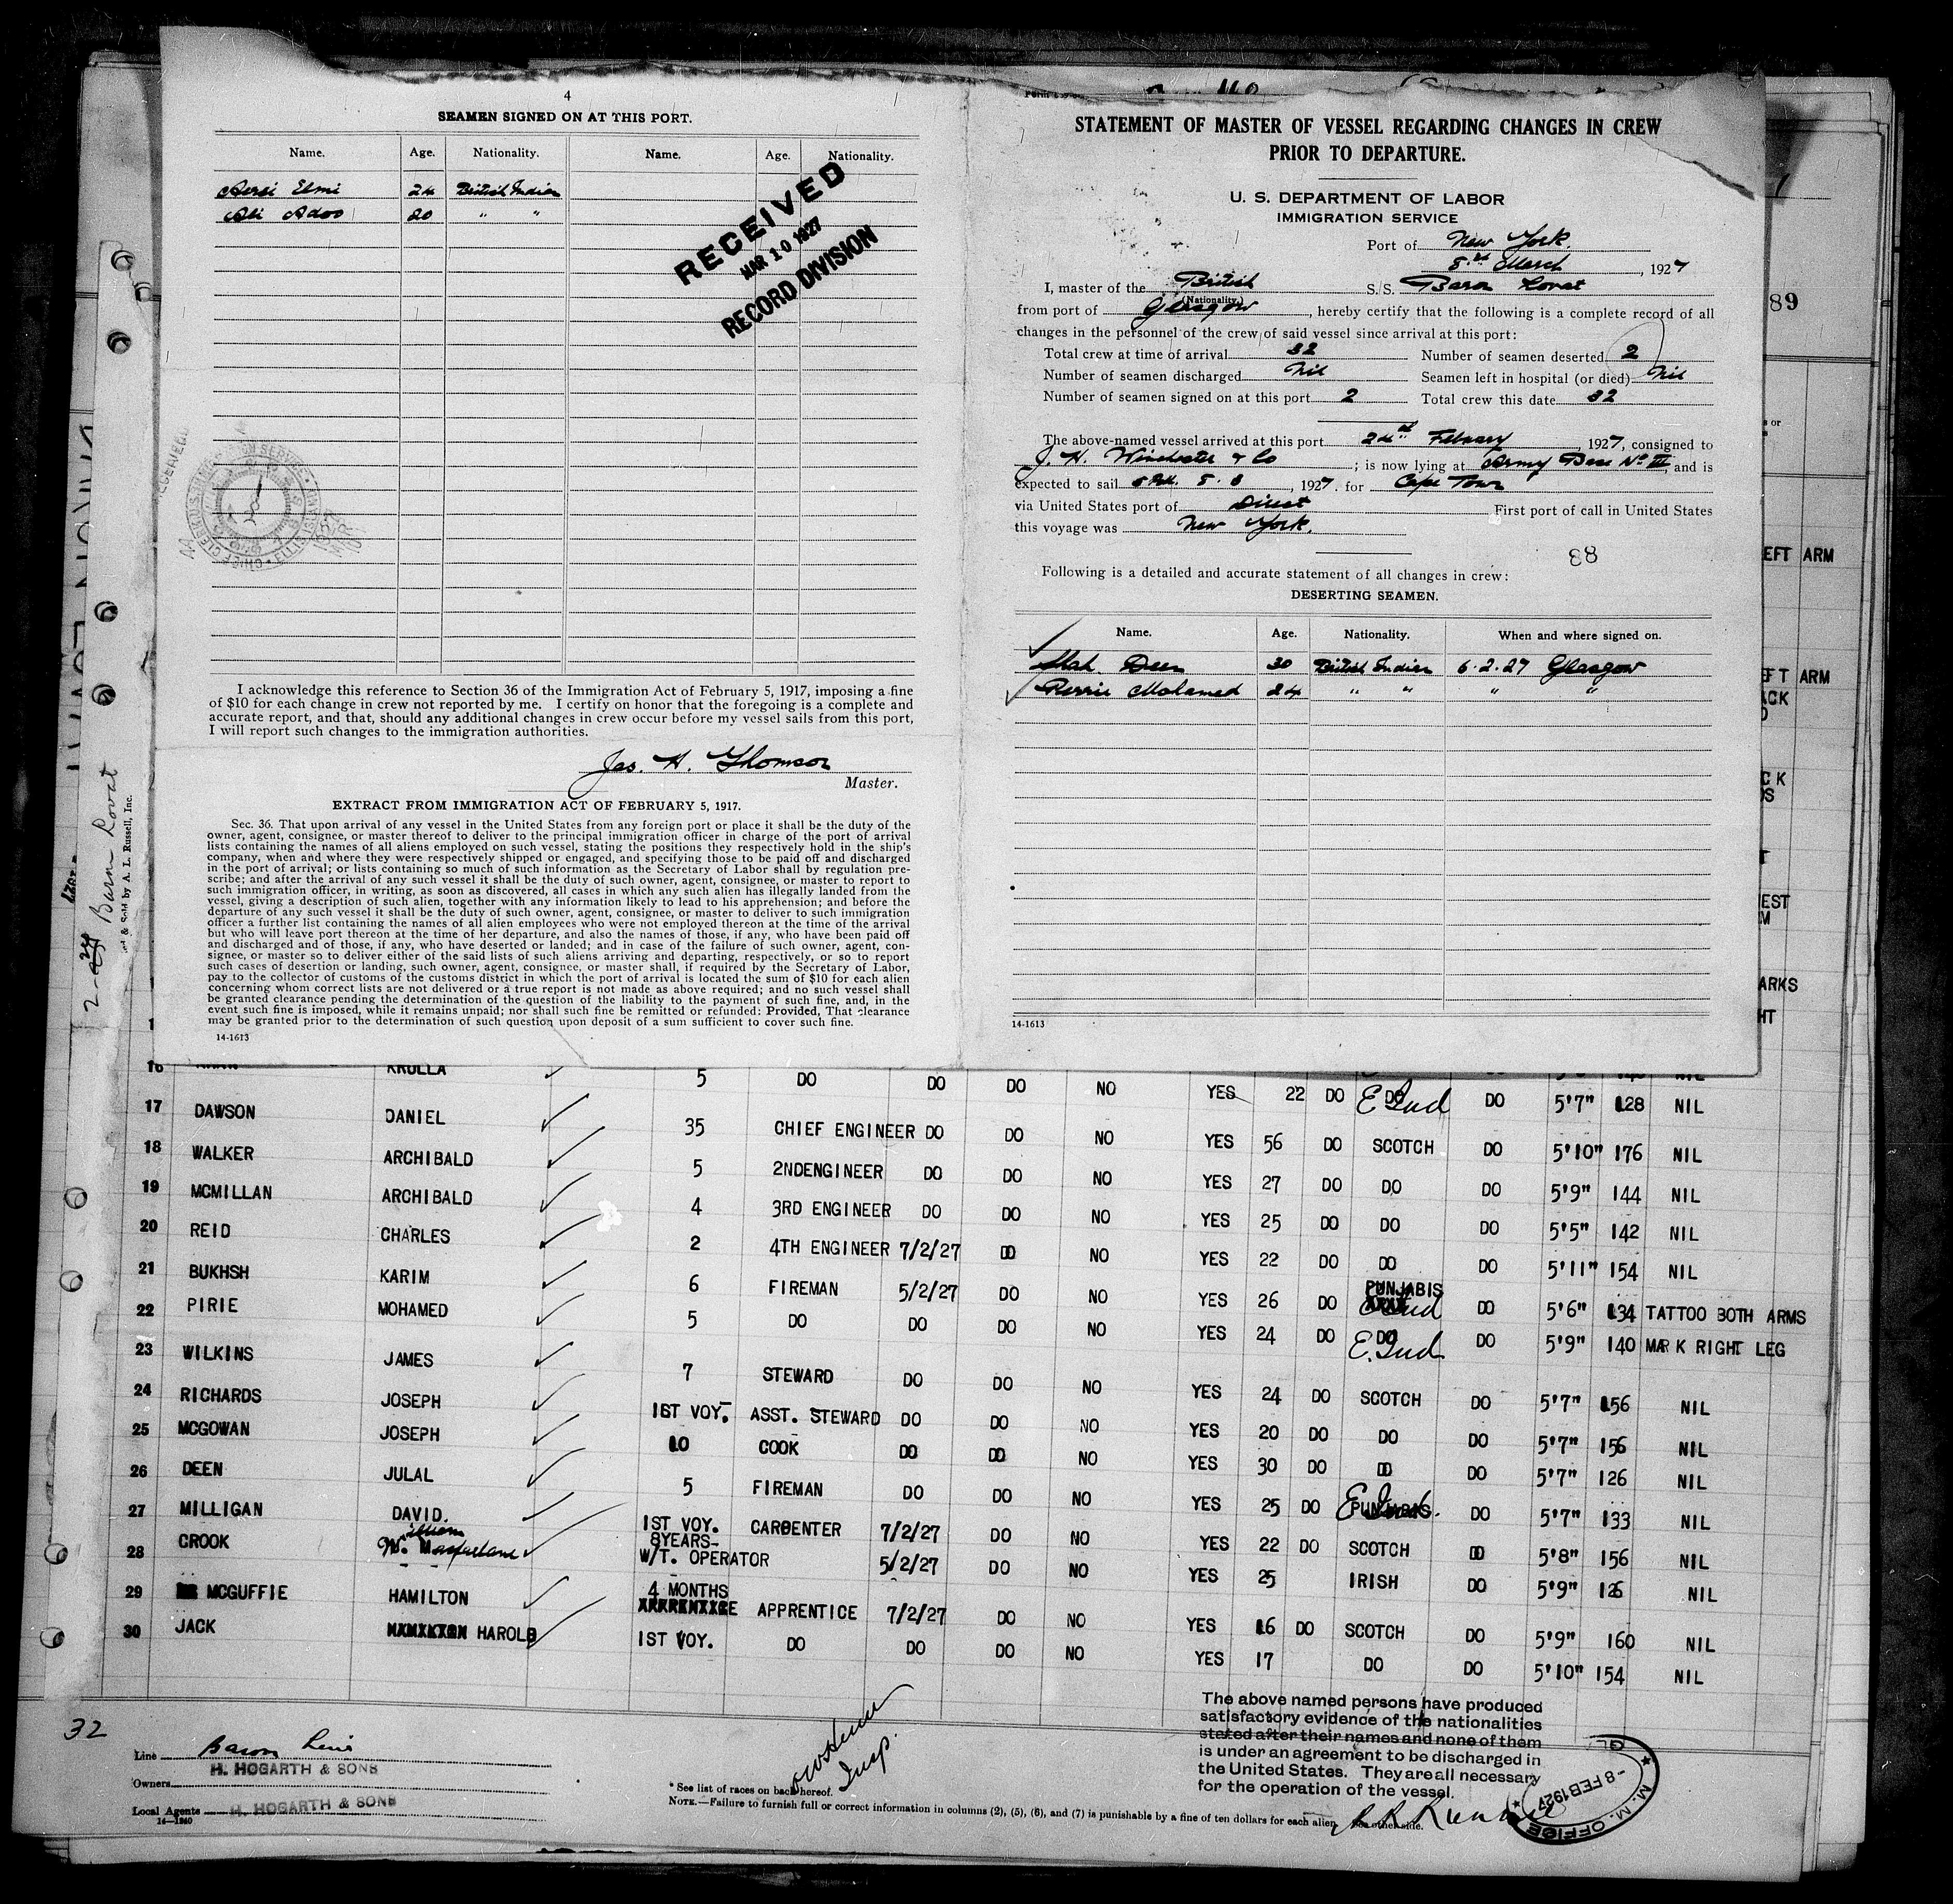 4
SEAMEN SIGNED ON AT THIS PORT.
Name. Age. Nationality. Name. Age. Nationality.
Elmi 24 British Indian
Ali Adoo 20 " "
RECEIVED
MAR 10 1927
RECORD DIVISION
I acknowledge this reference to Section 36 of the Immigration Act of February 5, 1917, imposing a fine
of $10 for each change in crew not reported by me. I certify on honor that the foregoing is a complete and
accurate report, and that, should any additional changes in crew occur before my vessel sails from this port,
I will report such changes to the immigration authorities.
Jas. H. Thomson
Master.
EXTRACT FROM IMMIGRATION ACT OF FEBRUARY 5, 1917.
Sec. 36. That upon arrival of any vessel in the United States from any foreign port or place it shall be the duty of the
owner, agent, consignee, or master thereof to deliver to the principal immigration officer in charge of the port of arrival
lists containing the names of all aliens employed on such vessel, stating the positions they respectively hold in the ship's
company, when and where they were respectively shipped or engaged, and specifying those to be paid off and discharged
in the port of arrival; or lists containing so much of such information as the Secretary of Labor shall by regulation pre-
scribe; and after the arrival of any such vessel it shall be the duty of such owner, agent, consignee, or master to report to
such immigration officer, in writing, as soon as discovered, all cases in which any such alien has illegally landed from the
vessel, giving a description of such alien, together with any information likely to lead to his apprehension; and before the
departure of any such vessel it shall be the duty of such owner, agent, consignee, or master to deliver to such immigration
officer a further list containing the names of all alien employees who were not employed thereon at the time of the arrival
but who will leave port thereon at the time of her departure, and also the names of those, if any, who have been paid off
and discharged and of those, if any, who have deserted or landed; and in case of the failure of such owner, agent, con-
signee, or master so to deliver either of the said lists of such aliens arriving and departing, respectively, or so to report
such cases of desertion or landing, such owner, agent, consignee, or master shall, if required by the Secretary of Labor,
pay to the collector of customs of the customs district in which the port of arrival is located the sum of $10 for each alien
concerning whom correct lists are not delivered or a true report is not made as above required; and no such vessel shall
be granted clearance pending the determination of the question of the liability to the payment of such fine, and, in the
event such fine is imposed, while it remains unpaid; nor shall such fine be remitted or refunded: Provided, That clearance
may be granted prior to the determination of such question upon deposit of a sum sufficient to cover such fine.
14-1613
STATEMENT OF MASTER OF VESSEL REGARDING CHANGES IN CREW
PRIOR TO DEPARTURE.
U. S. DEPARTMENT OF LABOR
IMMIGRATION SERVICE
Port of New York.
8th March, 1927
I, master of the British S.S. Baron Lovat
(Nationality.)
from port of Glasgow, hereby certify that the following is a complete record of all
changes in the personnel of the crew of said vessel since arrival at this port:
Total crew at time of arrival 32 Number of seamen deserted 2
Number of seamen discharged Nil Seamen left in hospital (or died) Nil
Number of seamen signed on at this port 2 Total crew this date 32
The above-named vessel arrived at this port 24th Febuary, 1927, consigned to
J. H. Winchester & Co; is now lying at Army Base No III, and is
expected to sail 1927. for Cape Town
via United States port of Direct First port of call in United States
this voyage was New York.
88
Following is a detailed and accurate statement of all changes in crew:
DESERTING SEAMEN.
Name. Age. Nationality. When and where signed on.
Alah Deen 30 British Indian 6.2.27 Glasgow
Mohamed 24 " " " "
14-1613
89
EFT ARM
Baron Lovat
& Sold by A. L. Russell, Inc.
16 KRULLA 5 DO DO DO NO YES 22 DO DO E Ind DO 5'7" 128 NIL
17 DAWSON DANIEL 35 CHIEF ENGINEER DO DO NO YES 56 DO SCOTCH DO 5'10" 176 NIL
18 WALKER ARCHIBALD 5 2NDENGINEER DO DO NO YES 27 DO DO DO 5'9" 144 NIL
19 MCMILLAN ARCHIBALD 4 3RD ENGINEER DO DO NO YES 25 DO DO DO 5'5" 142 NIL
20 REID CHARLES 2 4TH ENGINEER 7/2/27 DO NO YES 22 DO DO DO 5'11" 154 NIL
21 BUKHSH KARIM 6 FIREMAN 5/2/27 DO NO YES 26 DO PUNJABIS E Ind DO 5'6" 134 TATTOO BOTH ARMS
22 PIRIE MOHAMED 5 DO DO DO NO YES 24 DO DO E. Ind DO 5'9" 140 MARK RIGHT LEG
23 WILKINS JAMES 7 STEWARD DO DO NO YES 24 DO SCOTCH DO 5'7" 156 NIL
24 RICHARDS JOSEPH 1ST VOY. ASST. STEWARD DO DO NO YES 20 DO DO DO 5'7" 156 NIL
25 MCGOWAN JOSEPH 10 COOK DO DO NO YES 30 DO DO DO 5'7" 126 NIL
26 DEEN JULAL 5 FIREMAN DO DO NO YES 25 DO PUNJABIS. E Ind. DO 5'7" 133 NIL
27 MILLIGAN DAVID. 1ST VOY. CARPENTER 7/2/27 DO NO YES 22 DO SCOTCH DO 5'8" 156 NIL
28 CROOK William Macfarlane 8YEARS- W/T. OPERATOR 5/2/27 DO NO YES 25 IRISH DO 5'9" 126 NIL
29 MCGUFFIE HAMILTON 4 MONTHS APPRENTICE 7/2/27 DO NO YES 16 DO SCOTCH DO 5'9" 160 NIL
30 JACK HAROLD 1ST VOY. DO DO DO NO YES 17 DO DO 5'10" 154 NIL
32
Line Baron Line
Owners H. HOGARTH & SONS
Local Agents H. HOGARTH & SONS
14—1240
Insp.
* See list of races on back hereof.
NOTE.—Failure to furnish full or correct information in columns (2), (5), (6), and (7) is punishable by a fine of ten dollars for each alien. See other side.
The above named persons have produced
satisfactory evidence of the nationalities
stated after their names and none of them
is under an agreement to be discharged in
the United States. They are all necessary
for the operation of the vessel.
M. M. OFFICE
-8 FEB 1927